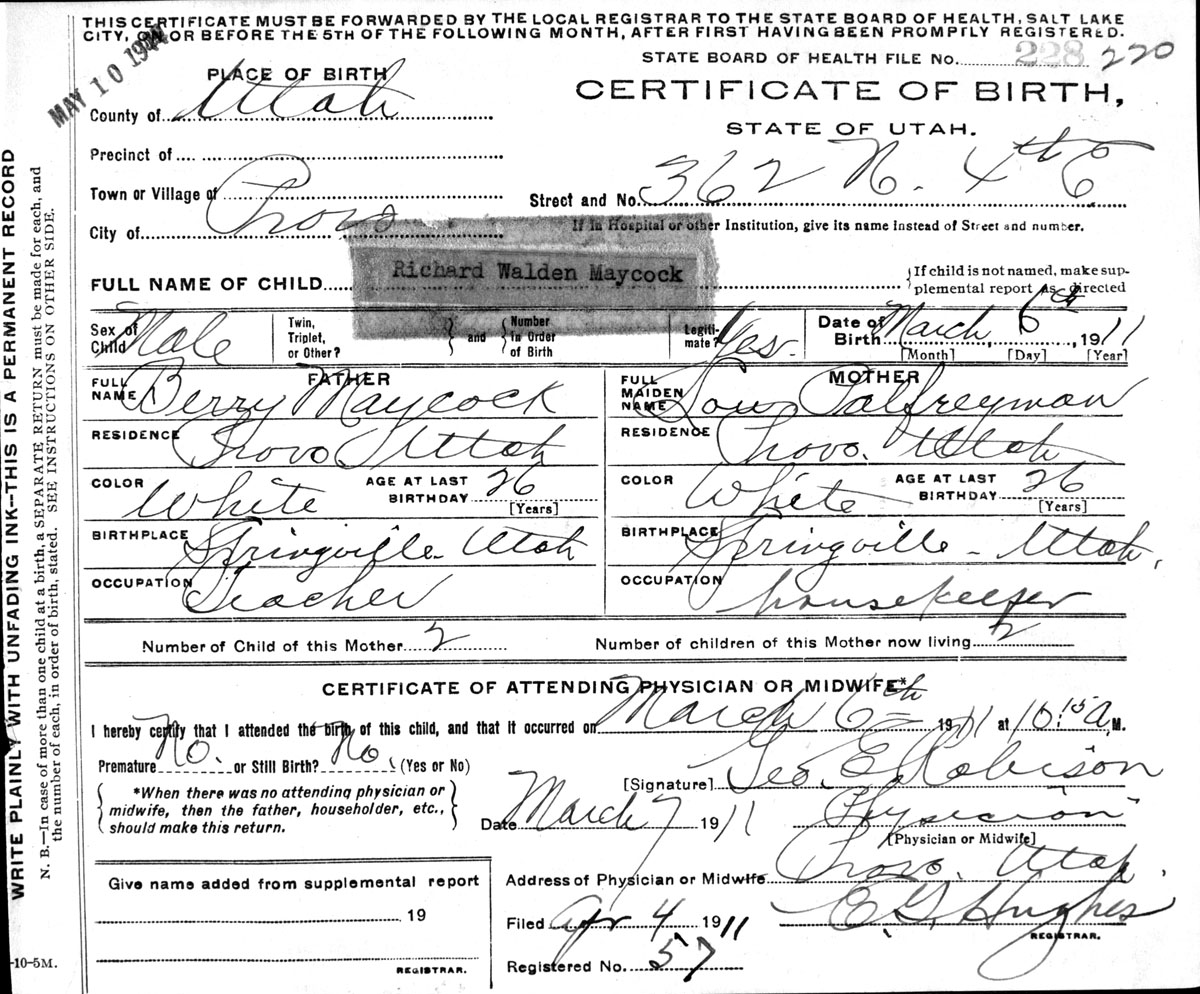 THIS CERTIFICATE MUST BE FORWARDED BY THE LOCAL REGISTRAR TO THE STATE BOARD OF HEALTH, SALT LAKE
CITY, ON OR BEFORE THE 5TH OF THE FOLLOWING MONTH, AFTER FIRST HAVING BEEN PROMPTLY REGISTERED.
MAY 10
STATE BOARD OF HEALTH FILE No. 228 220
PLACE OF BIRTH
CERTIFICATE OF BIRTH,
County of Utah
STATE OF UTAH.
Precinct of
Town or Village of
Street and No. 362 N. 4th E
City of Provo
If in Hospital or other Institution, give its name instead of Street and number.
FULL NAME OF CHILD Richard Walden Maycock
If child is not named, make sup-
plemental report as directed
Sex of Child Male
Twin, Triplet, or Other?
and
Number in Order of Birth
Legiti-mate? Yes.
Date of Birth March, 6th, 1911
[Month] [Day] [Year]
FATHER
FULL NAME Berry Maycock
RESIDENCE Provo Utah
COLOR White
AGE AT LAST BIRTHDAY 26
[Years]
BIRTHPLACE Springville Utah
OCCUPATION Teacher
MOTHER
FULL MAIDEN NAME Lou Palfreyman
RESIDENCE Provo. Utah
COLOR White
AGE AT LAST BIRTHDAY 26
[Years]
BIRTHPLACE Springville - Utah,
OCCUPATION housekeeper
Number of Child of this Mother 2
Number of children of this Mother now living 2
CERTIFICATE OF ATTENDING PHYSICIAN OR MIDWIFE*
I hereby certify that I attended the birth of this child, and that it occurred on March 6th 1911 at 10:15 a M.
Premature No. or Still Birth? No. (Yes or No)
*When there was no attending physician or
midwife, then the father, householder, etc.,
should make this return.
[Signature] Geo. E Robison
Date March 7 1911
Physician
[Physician or Midwife]
Address of Physician or Midwife Provo. Utah.
Give name added from supplemental report
19
REGISTRAR.
Filed Apr 4 1911
E. G. Hughes
REGISTRAR.
Registered No. 57
-10-5M.
WRITE PLAINLY WITH UNFADING INK--THIS IS A PERMANENT RECORD
N. B.—In case of more than one child at a birth, a SEPARATE RETURN must be made for each, and
the number of each, in order of birth, stated. SEE INSTRUCTIONS ON OTHER SIDE.